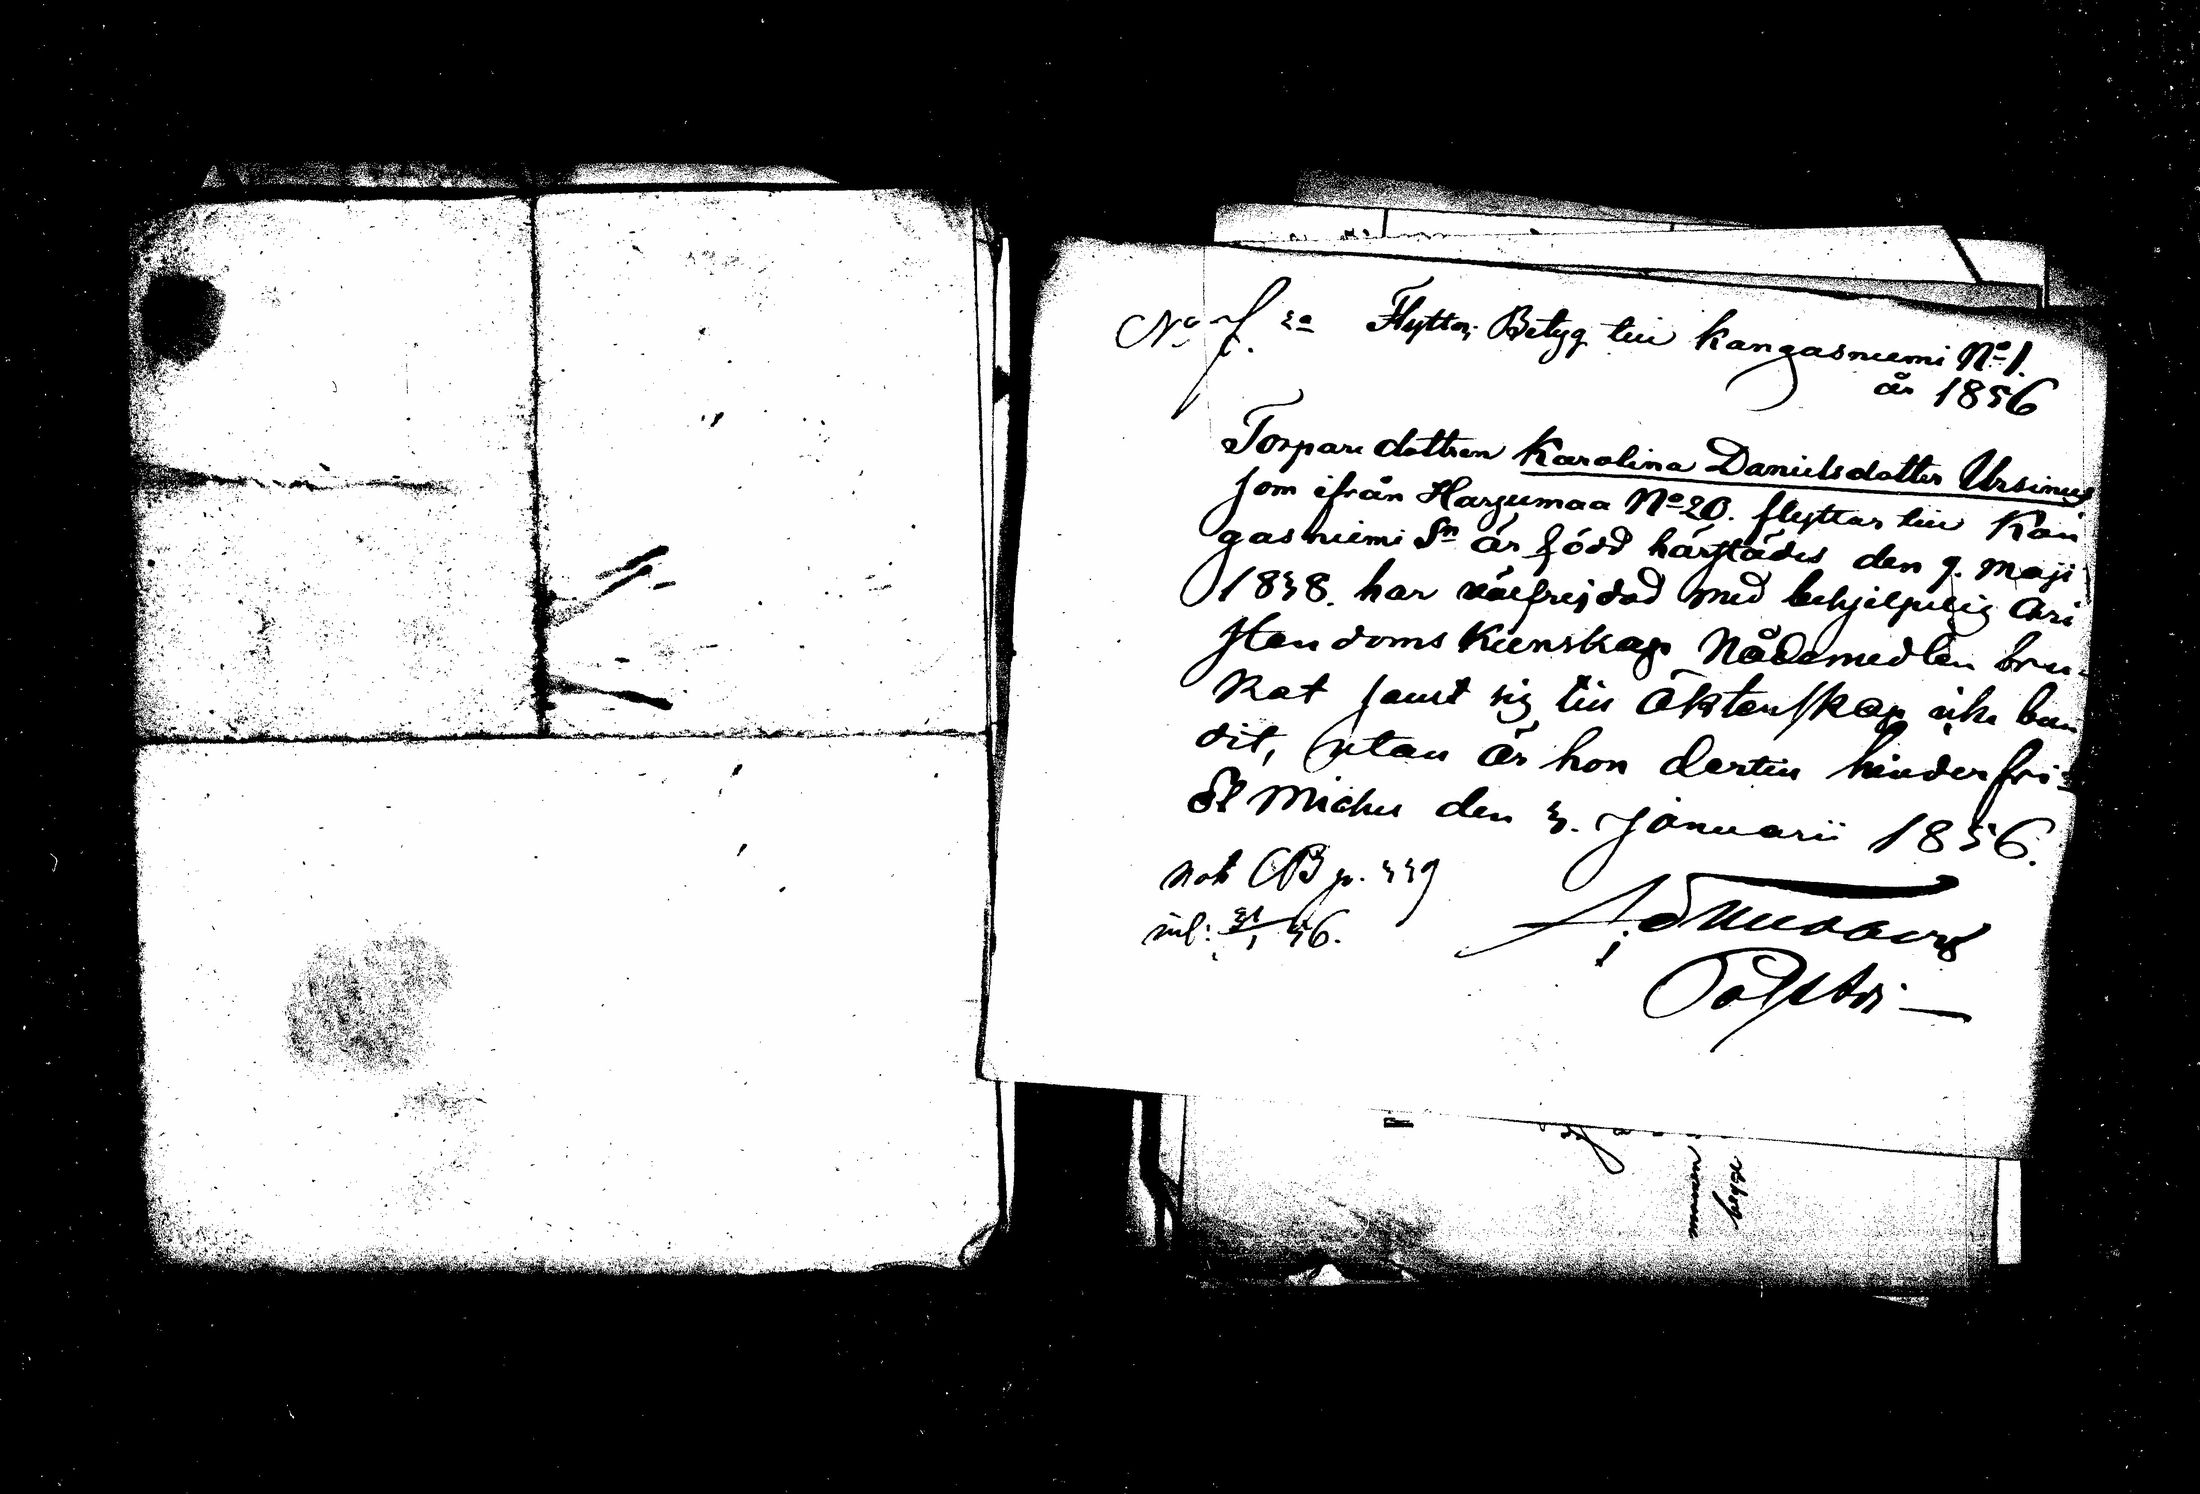 Flyttn: Betyg till Kangasniemi No 1.
år 1856
Torparedottren Karolina Danielsdotter Ursinus
som ifrån Harjumaa No 20. flyttar till Kan
gasniemi Sn är född härstädes den 9. Maji
1838. har välfrejdad med behjelpelig Chri
stendoms Kunskap Nådemedlen bru-
kat samt sig till äktenskap icke bun
dit, utan är hon dertill hinderfri.
St Michel den 3. Januarii 1856.
not CB p. 339
inl: 31/1 56.